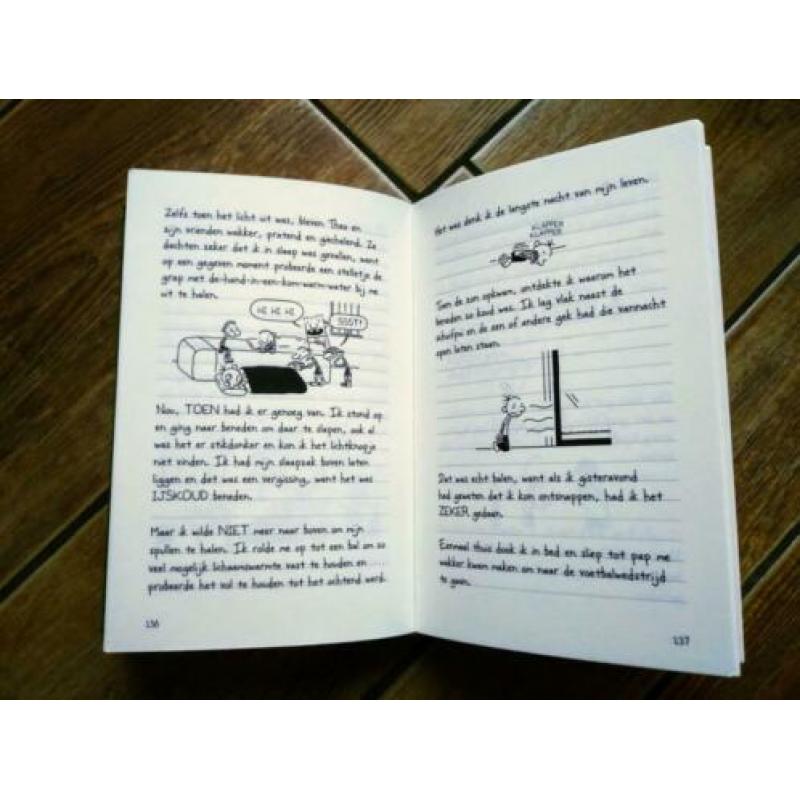 Zelfs toen het licht uit was, bleven Theo en
zijn vrienden wakker, pratend en giechelend. Ze
dachten zeker dat ik in slaap was gevallen, want
op een gegeven moment probeerde een stelletje de
grap met de-hand-in-een-kom-warm-water bij me
uit te halen.
HI HI HI
SSST!
Nou, TOEN had ik er genoeg van. Ik stond op
en ging naar beneden om daar te slapen, ook al
was het er stikdonker en kon ik het lichtknopje
niet vinden. Ik had mijn slaapzak boven laten
liggen en dat was een vergissing, want het was
IJSKOUD beneden.
Maar ik wilde NIET meer naar boven om mijn
spullen te halen. Ik rolde me op tot een bal om zo
veel mogelijk lichaamswarmte vast te houden en
probeerde het vol te houden tot het ochtend werd.
136
Het was denk ik de langste nacht van mijn leven.
KLAPPER
KLAPPER
Toen de zon opkwam, ontdekte ik waarom het
beneden zo koud was. Ik lag vlak naast de
schuifpui en de een of andere gek had die vannacht
open laten staan.
Dat was echt balen, want als ik gisteravond
had geweten dat ik kon ontsnappen, had ik het
ZEKER gedaan.
Eenmaal thuis dook ik in bed en sliep tot pap me
wakker kwam maken om naar de voetbalwedstrijd
te gaan.
137